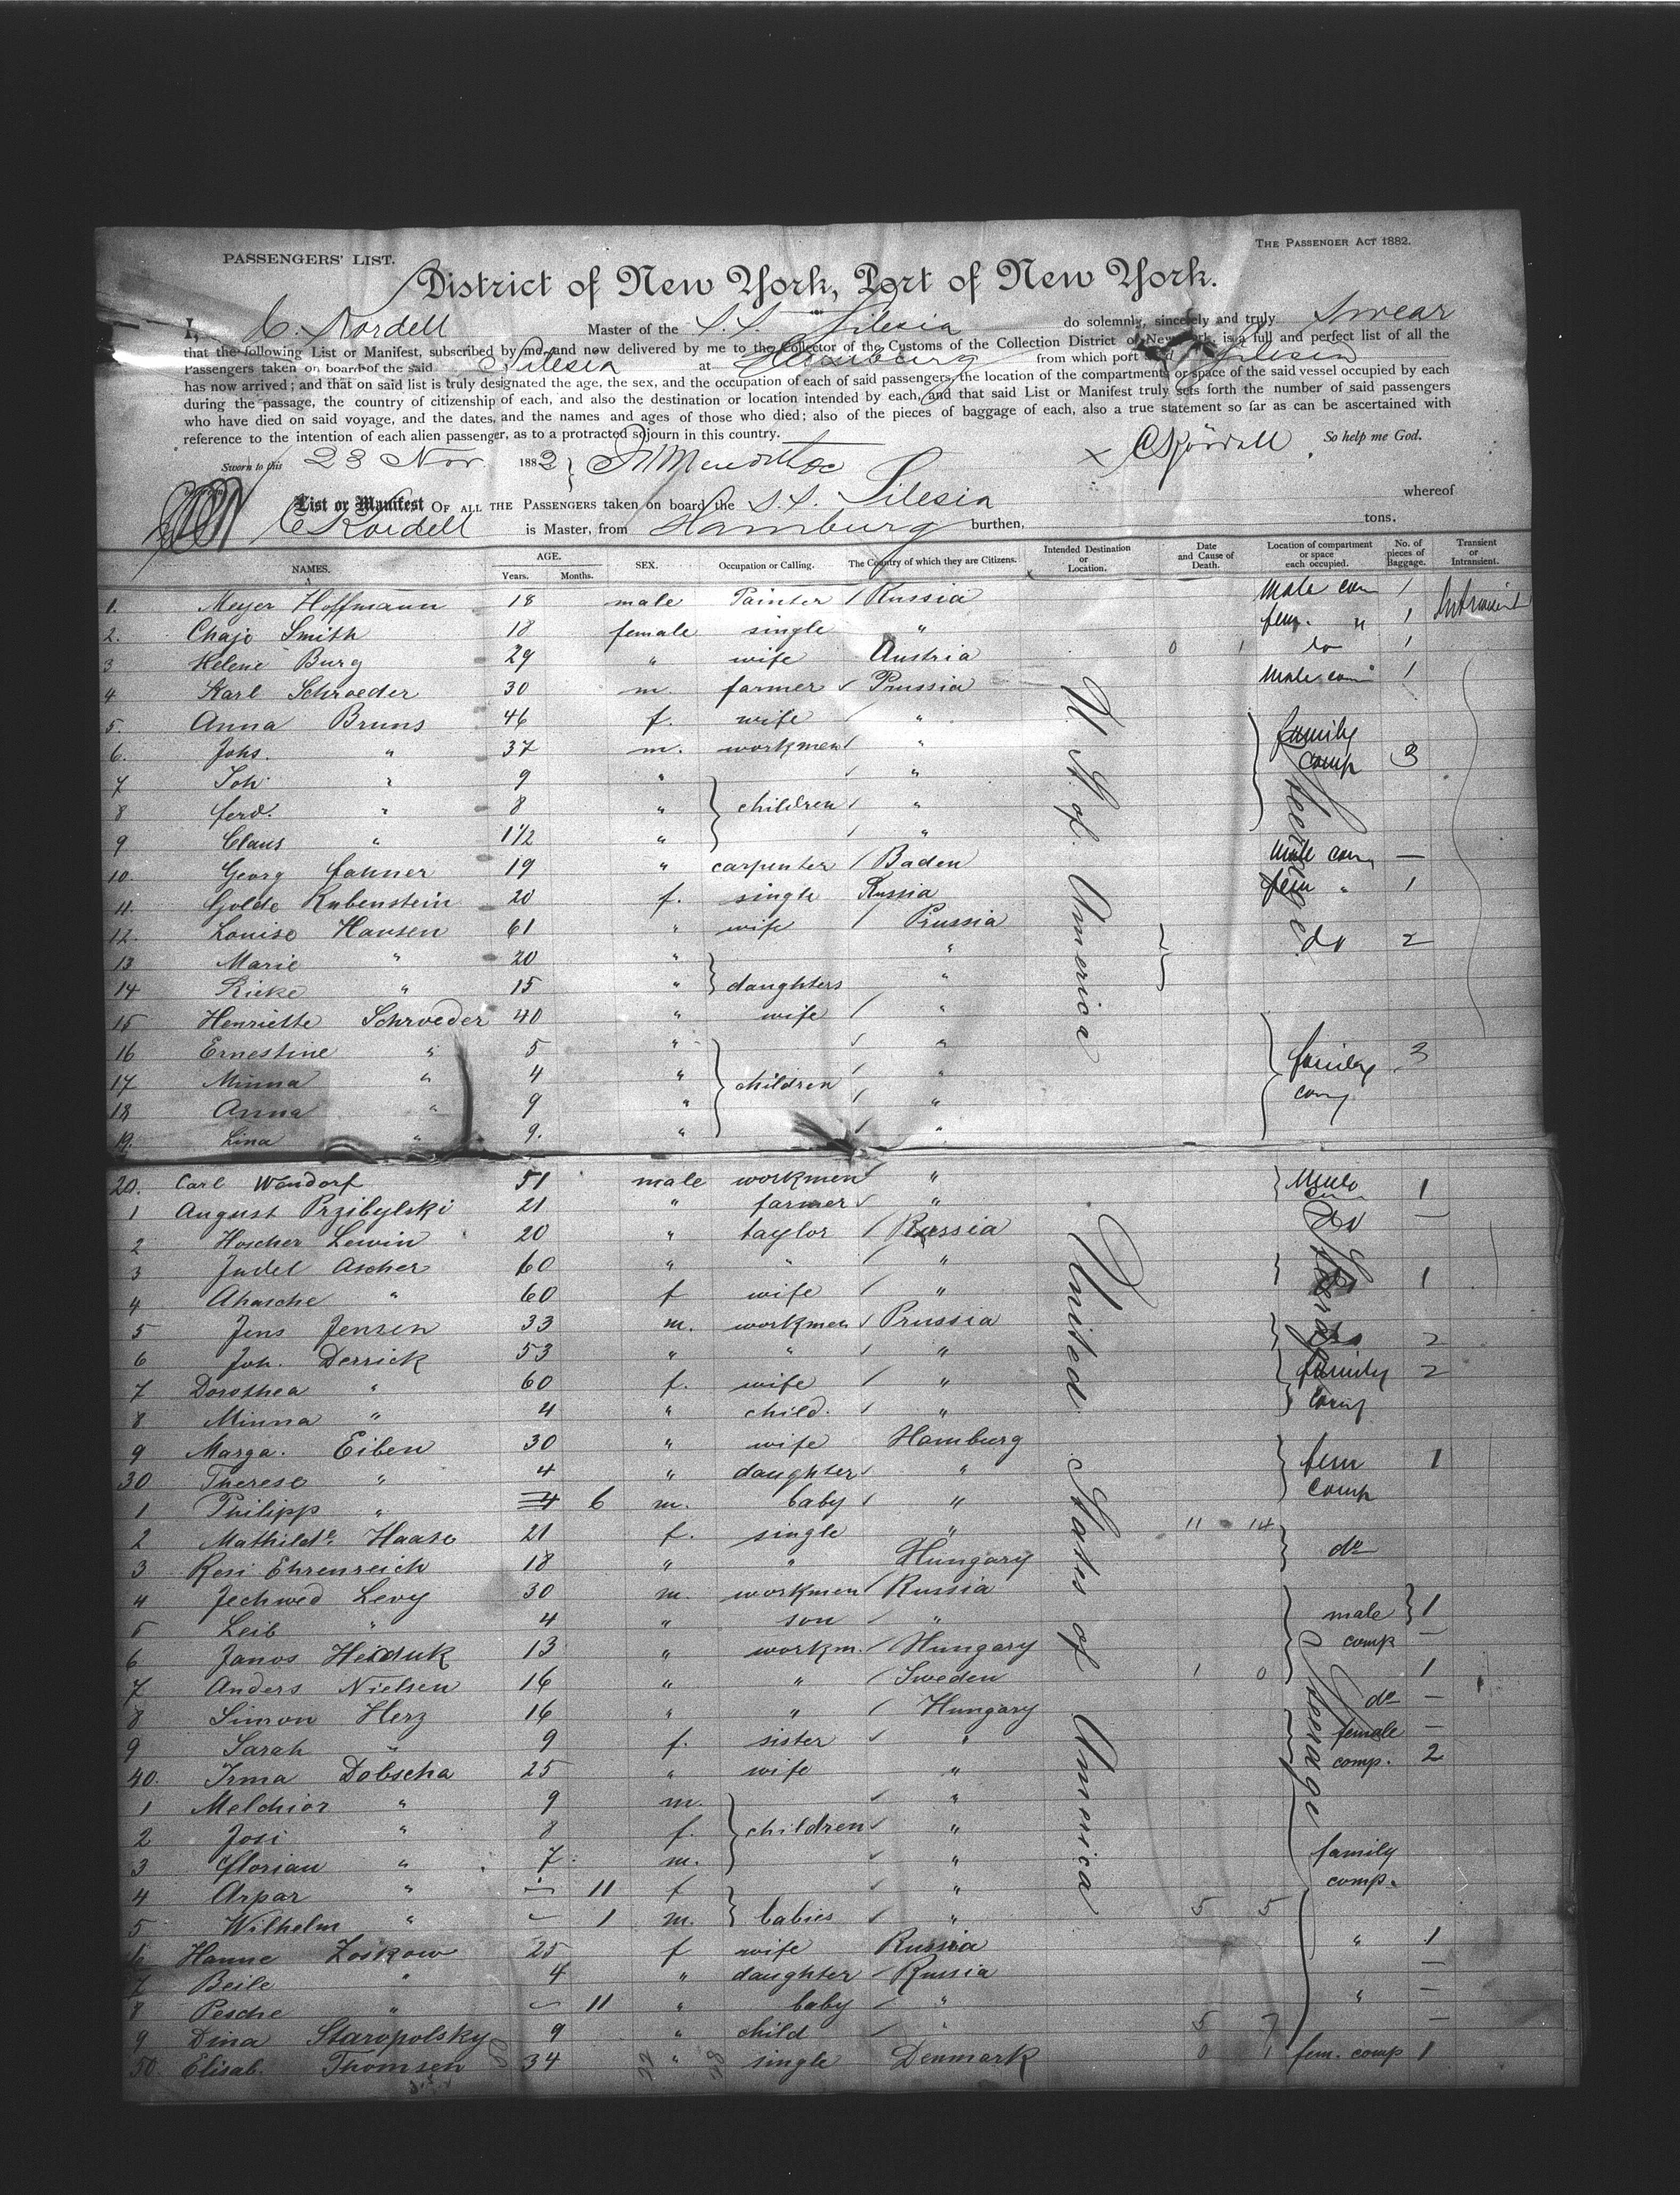 PASSENGERS' LIST. THE PASSENGER ACT 1882.
District of New York, Port of New York.
I, C. Kordell Master of the S. S. Silesia do solemnly, sincerely and truly Swear
that the following List or Manifest, subscribed by me, and now delivered by me to the Collector of the Customs of the Collection District of New York, is a full and perfect list of all the
Passengers taken on board of the said Silesia at Hamburg from which port said Silesia
has now arrived; and that on said list is truly designated the age, the sex, and the occupation of each of said passengers, the location of the compartments or space of the said vessel occupied by each
during the passage, the country of citizenship of each, and also the destination or location intended by each, and that said List or Manifest truly sets forth the number of said passengers
who have died on said voyage, and the dates, and the names and ages of those who died; also of the pieces of baggage of each, also a true statement so far as can be ascertained with
reference to the intention of each alien passenger, as to a protracted sojourn in this country.
Sworn to this 23 Nov. 1882 x CKördell So help me God.
List or Manifest OF ALL THE PASSENGERS taken on board the S. S. Silesia whereof
C Kordell is Master, from Hamburg burthen, tons.
NAMES. AGE. Years. Months. SEX. Occupation or Calling. The Country of which they are Citizens. Intended Destination or Location. Date and Cause of Death. Location of compartment or space each occupied. No. of pieces of Baggage. Transient or Intransient.
1. Meyer Hoffmann 18 male Painter / Russia male com 1 Intransient
2. Chaje Smith 18 female single " fem. " 1
3 Helene Burg 29 " wife Austria 0 1 do 1
4 Karl Schroeder 30 m farmer ✓ Prussia male com 1
5. Anna Bruns 46 f. wife / "
6. Johs. " 37 m. workmen / " family comp 3
7 Joh " 9 " ✓ "
8 ferd. " 8 " children / "
9 Claus " 1 1/2 " / "
10. Georg fahner 19 " carpenter / Baden male com —
11. Golde Rubenstein 20 f. single Russia fem " 1
12. Louise Hansen 61 " wife / Prussia do 2
13 Marie " 20 " "
14 Rieke " 15 " daughters "
15 Henriette Schroeder 40 " wife / "
16 Ernestine " 5 " ✓ " family com 3
17 Minna " 4 " children / "
18 Anna " 9 " / "
19. Lina " 9. " ✓ "
20. Carl Wendorf 51 male workmen ✓ " Male 1
1 August Przibylski 21 " farmer ✓ " do —
2 Hoscher Lewin 20 " taylor / Russia
3 Judel Ascher 60 " " / " 1
4 Ahasche " 60 f wife / "
5 Jens Jensen 33 m. workmen / Prussia 2
6 Joh. Derrick 53 " " / "
7 Dorothea " 60 f. wife / " family comp 2
8 Minna " 4 " child. ✓ "
9 Marga. Eiben 30 " wife Hamburg fem comp 1
30 Therese " 4 " daughter ✓ "
1 Philipp " 6 m. baby ✓ "
2 Mathilde Haase 21 f. single " 11 14 do
3 Resi Ehrenreich 18 " " Hungary
4 Jechwed Levy 30 m. workmen / Russia male comp 1
5 Leib " 4 " son ✓ " —
6 Janos Heiduk 13 " workm. / Hungary
7 Anders Nielsen 16 " " / Sweden 1 0 1
8 Simon Herz 16 " " / Hungary do —
9 Sarah " 9 f. sister ✓ " female comp. —
40. Irma Dobscha 25 " wife " 2
1 Melchior " 9 m. ✓ "
2 Josi " 8 f. children ✓ "
3 florian " 7 m. ✓ " family comp.
4 Arpar " 11 f ✓ "
5 Wilhelm " 1 m. babies ✓ " 5 5
6 Hanne Loskow 25 f wife Russia " 1
7 Beile " 4 " daughter / Russia —
8 Pesche " 11 " baby / " " —
9 Dina Staropolsky 9 " child / " 5 7 —
50. Elisab. Thomsen 34 " single Denmark 0 1 fem. comp 1
U. S. of America
United States of America
Steerage
Steerage
Steerage